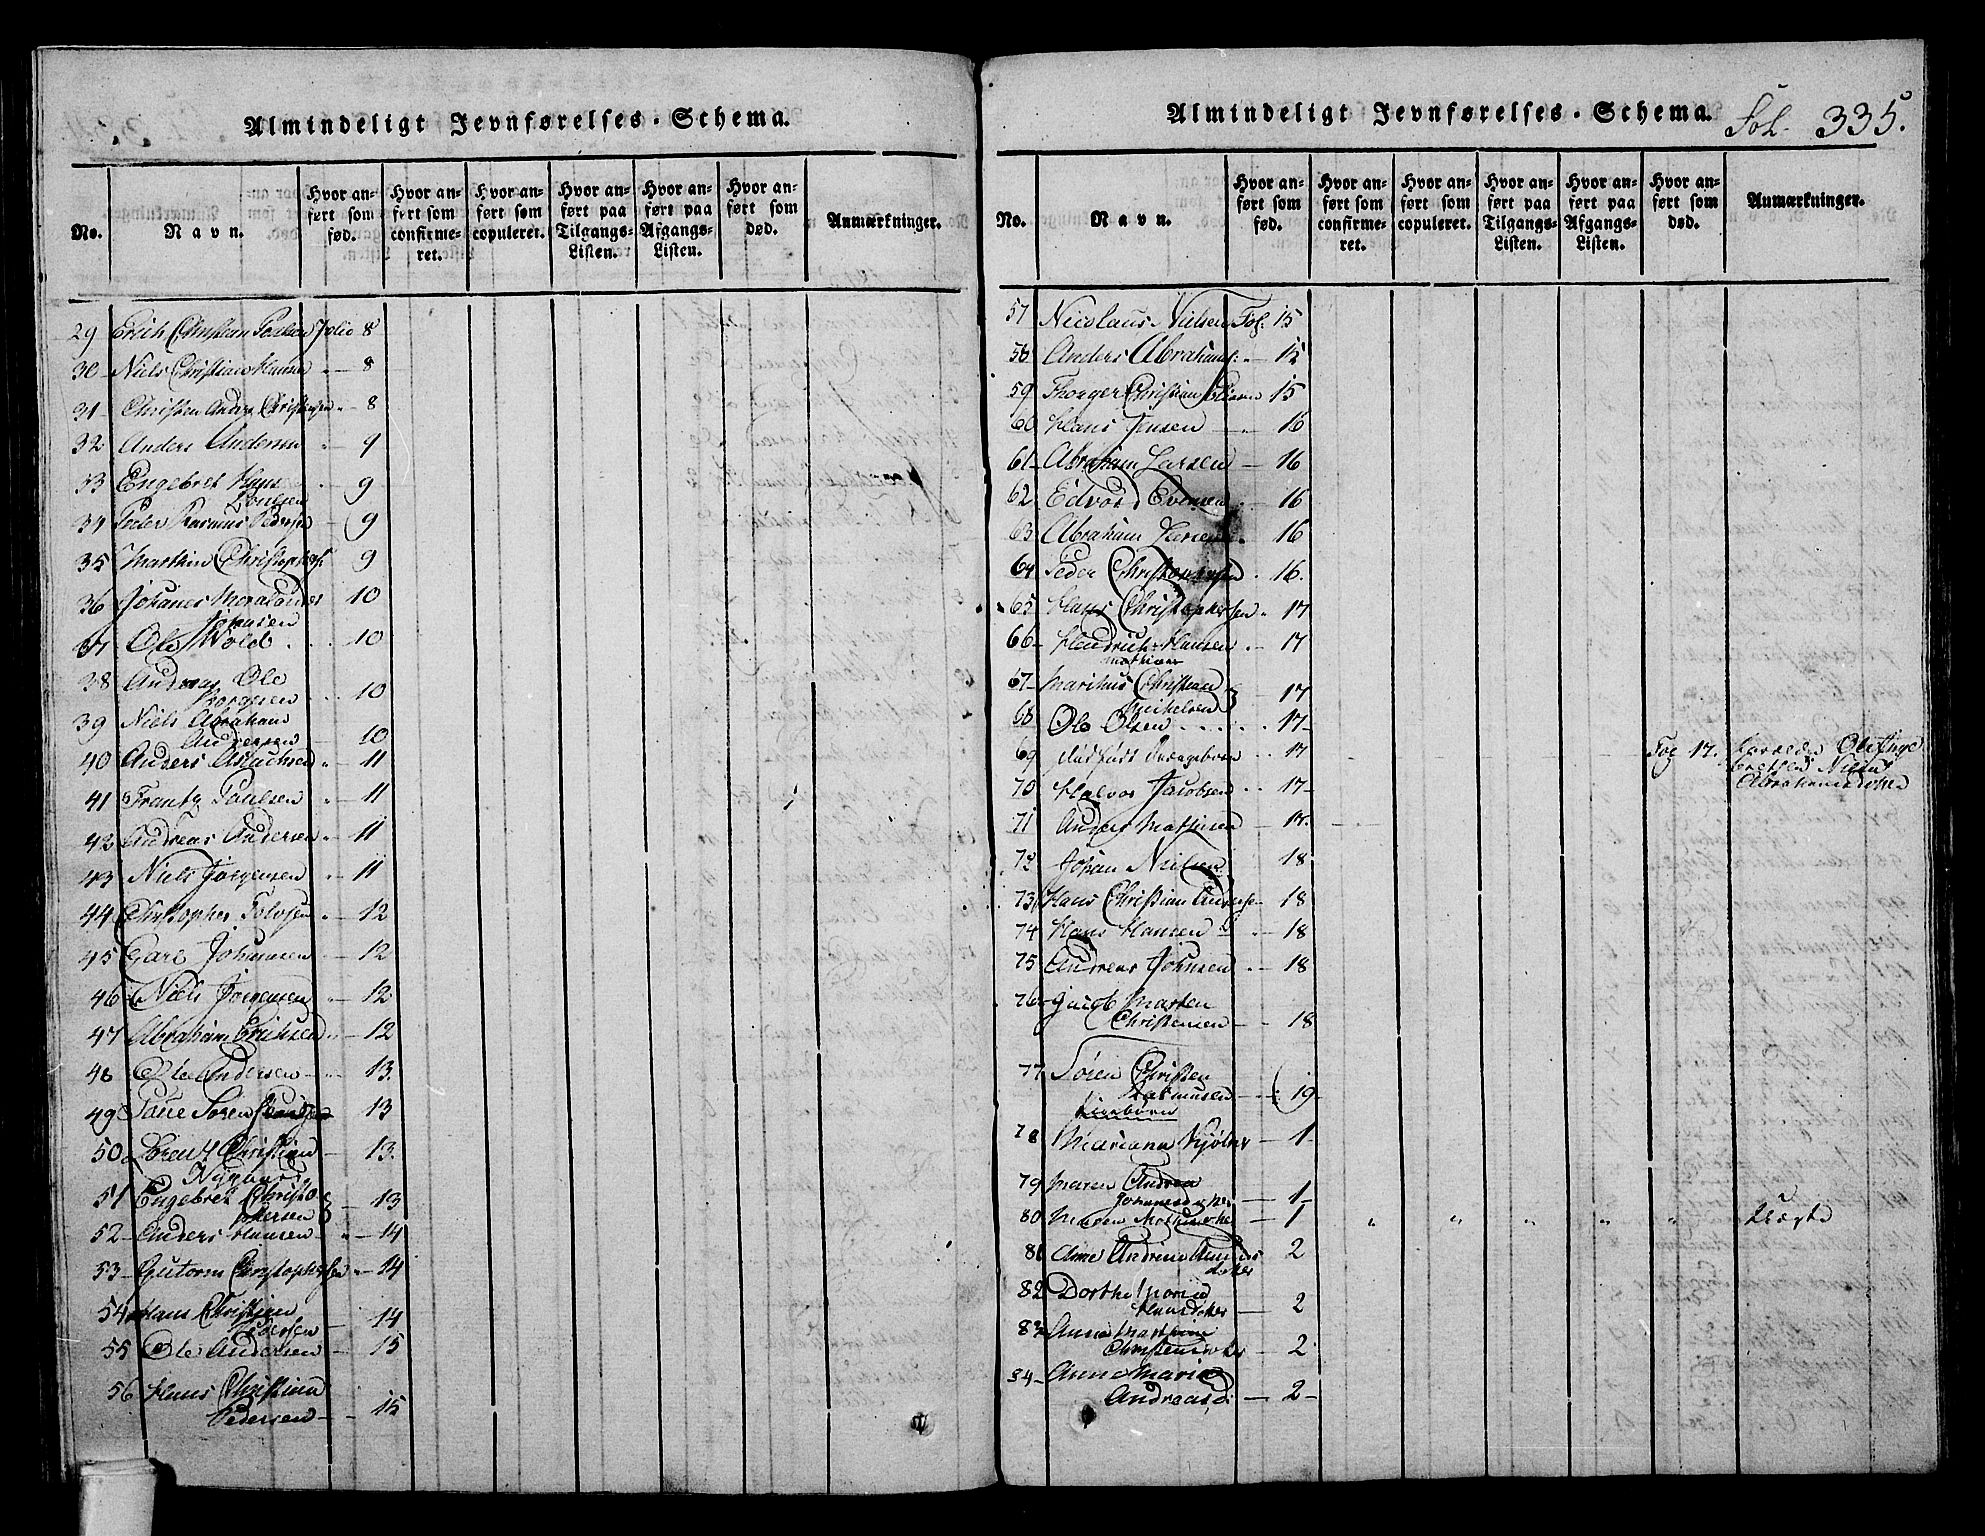 Almindeligt Jevnførelses-Schema.
No.
Navn.
Hvor anført som fød.
Hvor anført som confirmeret.
Hvor anført som copuleret.
Hvor anført paa Tilgangs-Listen.
Hvor anført paa Afgangs-Listen.
Hvor anført som død.
Anmærkninger.
29 Erich Christian Folio 8
30 Niels Christian Hansen 8
31 Christen Andr. Christensen 8
32 Anders Andersen 9
33 Engebret Hans
Poulsen 9
34 Peder Rasmus Peders. 9
35 Marthin Christophers. 9
36 Johanes
Johnsen 10
37 Ole Wold 10
38 Andreas Ole
10
39 Niels Abraham
Andersen 10
40 Anders Isachsen 11
41 Frantz Poulsen 11
42 Andreas Andersen 11
43 Niels Jörgensen 11
44 Christopher Tolvsen 12
45 Carl Johannsen 12
46 Niels Jörgensen 12
47 Abraham Erichsen 12
48 Ole Andersen 13.
49 Paul Sören 13
50 Lorentz Christian
Nÿgaard 13.
51 Engebret Christo
phersen 13
52 Anders Hansen 14
53 Gutorm Christophersen 14
54 Hans Christian
Pedersen 14
55 Ole Andersen 15
56 Hans Christian
Pedersen 15
Almindeligt Jevnførelses-Schema.
Fol. 335.
No.
Navn.
Hvor anført som fød.
Hvor anført som confirmeret.
Hvor anført som copuleret.
Hvor anført paa Tilgangs-Listen.
Hvor anført paa Afgangs-Listen.
Hvor anført som død.
Anmærkninger.
57 Nicolaus Nielsen Fol. 15
58 Anders Abrahams. 15
59 Thorger Christian 15
60 Hans Jensen 16
61 Abraham Larsen 16
62 Edvard Evensen 16
63 Abraham 16
64 Peder Christophersen 16.
65 Hans Christophersen 17
66 Hendrich Hansen 17
Mathias
67 Marthus Christian
Michelsen 17
68 Ole Olsen 17
69 17 Fol 17.
Abrahamsdatter
70 Halvor Jacobsen 17
71 Anders Mathisen 17.
72 Johan Nielsen 18
73 Hans Christian Anderse 18
74 Hans Hansen 18
75 Andreas Johnsen 18
76 Jacob Marten
Christensen 18
77 Sören Christen
Rasmusen 19
78 Mariana 1
79 Maren Andrea
1
80 Maren 1 " " " " "
81 Ane Andrine
2
82 Dorthe
Hansdatter 2
83 Anna Marthine
Christensdatter 2
84 Anne Maria
Andreasd 2